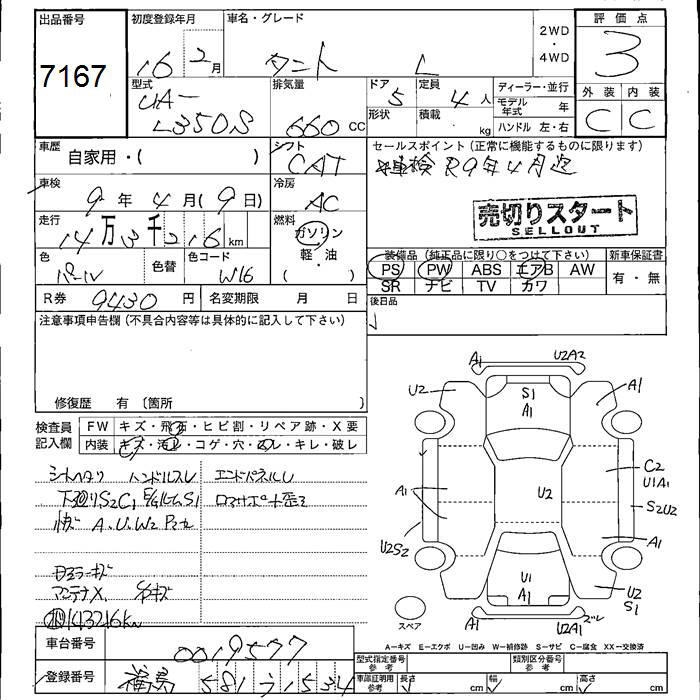 出品番号
7167
初度登録年月
16年 2月
車名・グレード
タント L
2WD
・
4WD
評価点
3
型式
UA-
L350S
排気量
660 CC
ドア
5
形状
定員
4人
積載
kg
ディーラー・並行
モデル年式 年
ハンドル 左・右
外装 内装
C C
車歴
自家用・( )
シフト
CAT
セールスポイント(正常に機能するものに限ります)
車検 R9年4月迄
車検
9年 4月(9日)
冷房
AC
売切りスタート
SELLOUT
走行
14万3千216km
燃料
ガソリン
軽・油
( )
装備品(純正品に限り○をつけて下さい)
新車保証書
PS PW ABS エアB AW
SR ナビ TV カワ
有・無
色
パール
色替
色コード
W16
R券 9430円
名変期限 月 日
後日品
注意事項申告欄(不具合内容等は具体的に記入して下さい)
修復歴 有 (箇所
検査員記入欄
FW キズ・飛石・ヒビ割・リペア跡・X要
内装 キズ・汚れ・コゲ・穴・ヌレ・キレ・破レ
ハンドルスレ エンドパネルU
下廻りS2C1
A.U.W2
マンテナX
143216km
A1 U2A2
U2 S1 A1 A1
C2
U1A1
A1 U2 S2U2
A1
U2S2
U1
A1
U2
S1
U2A1 ズレ
スペア
A−キズ E−エクボ U−凹み W−補修跡 S−サビ C−腐食 XX−交換済
車台番号
0019577
登録番号
福島 581 う 1534
型式指定番号
参考
類別区分番号
参考
車庫証明用
参考
長さ cm 幅 cm 高さ cm